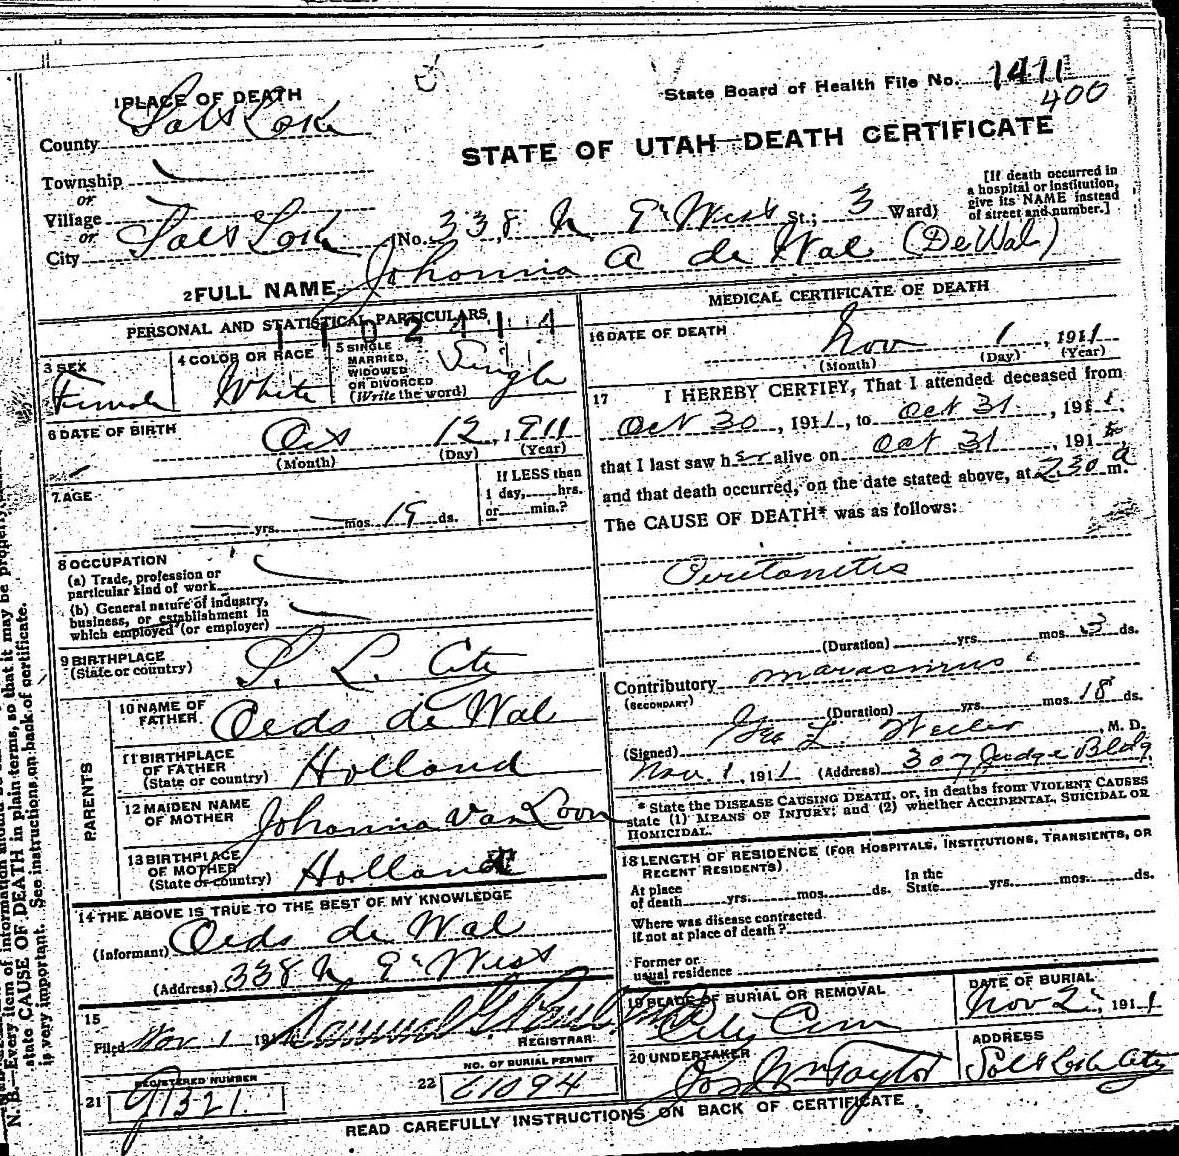 State Board of Health File No. 1411
400
1 PLACE OF DEATH
County Salt Lake
STATE OF UTAH—DEATH CERTIFICATE
Township
or
Village
or
City Salt Lake (No. 338 N 8" West St.; 3 Ward)
[If death occurred in
a hospital or institution,
give its NAME instead
of street and number.]
2 FULL NAME Johanna A de Wal (De Wal)
PERSONAL AND STATISTICAL PARTICULARS
3 SEX
Female
4 COLOR OR RACE
White
5 SINGLE
MARRIED,
WIDOWED
OR DIVORCED
(Write the word)
Single
6 DATE OF BIRTH
Oct 12, 1911
(Month) (Day) (Year)
7. AGE
yrs. mos. 19 ds.
If LESS than
1 day, hrs.
or min.?
8 OCCUPATION
(a) Trade, profession or
particular kind of work
(b) General nature of industry,
business, or establishment in
which employed (or employer)
9 BIRTHPLACE
(State or country)
S. L. City
PARENTS
10 NAME OF
FATHER
Oeds de Wal
11 BIRTHPLACE
OF FATHER
(State or country)
Holland
12 MAIDEN NAME
OF MOTHER
Johanna Van Loon
13 BIRTHPLACE
OF MOTHER
(State or country)
Holland
14 THE ABOVE IS TRUE TO THE BEST OF MY KNOWLEDGE
(Informant) Oeds de Wal
(Address) 338 N 8" West
15
Filed Nov 1 191
Samuel G. Paul
REGISTRAR
REGISTERED NUMBER
21
NO. OF BURIAL PERMIT
22 C1094
MEDICAL CERTIFICATE OF DEATH
16 DATE OF DEATH
Nov 1, 1911
(Month) (Day) (Year)
17 I HEREBY CERTIFY, That I attended deceased from
Oct 30, 1911, to Oct 31, 1911,
that I last saw her alive on Oct 31, 191
and that death occurred, on the date stated above, at 230 a m.
The CAUSE OF DEATH* was as follows:
Peritonitis
(Duration) yrs. mos. 3 ds.
Contributory marasmus
(SECONDARY)
(Duration) yrs. mos. 18 ds.
(Signed) Geo L. M. D.
Nov. 1, 1911 (Address) 307 Judge Bldg
* State the DISEASE CAUSING DEATH, or, in deaths from VIOLENT CAUSES
state (1) MEANS OF INJURY; and (2) whether ACCIDENTAL, SUICIDAL OR
HOMICIDAL.
18 LENGTH OF RESIDENCE (FOR HOSPITALS, INSTITUTIONS, TRANSIENTS, OR
RECENT RESIDENTS)
At place
of death yrs. mos. ds.
In the
State yrs. mos. ds.
Where was disease contracted
if not at place of death?
Former or
usual residence
19 PLACE OF BURIAL OR REMOVAL
City Cem
DATE OF BURIAL
Nov 2, 1911
20 UNDERTAKER
Jos Wm Taylor
ADDRESS
Salt Lake City
READ CAREFULLY INSTRUCTIONS ON BACK OF CERTIFICATE
state CAUSE OF DEATH in plain terms, so that it may be properly
is very important. See instructions on back of certificate.
N. B.—Every item of information should be